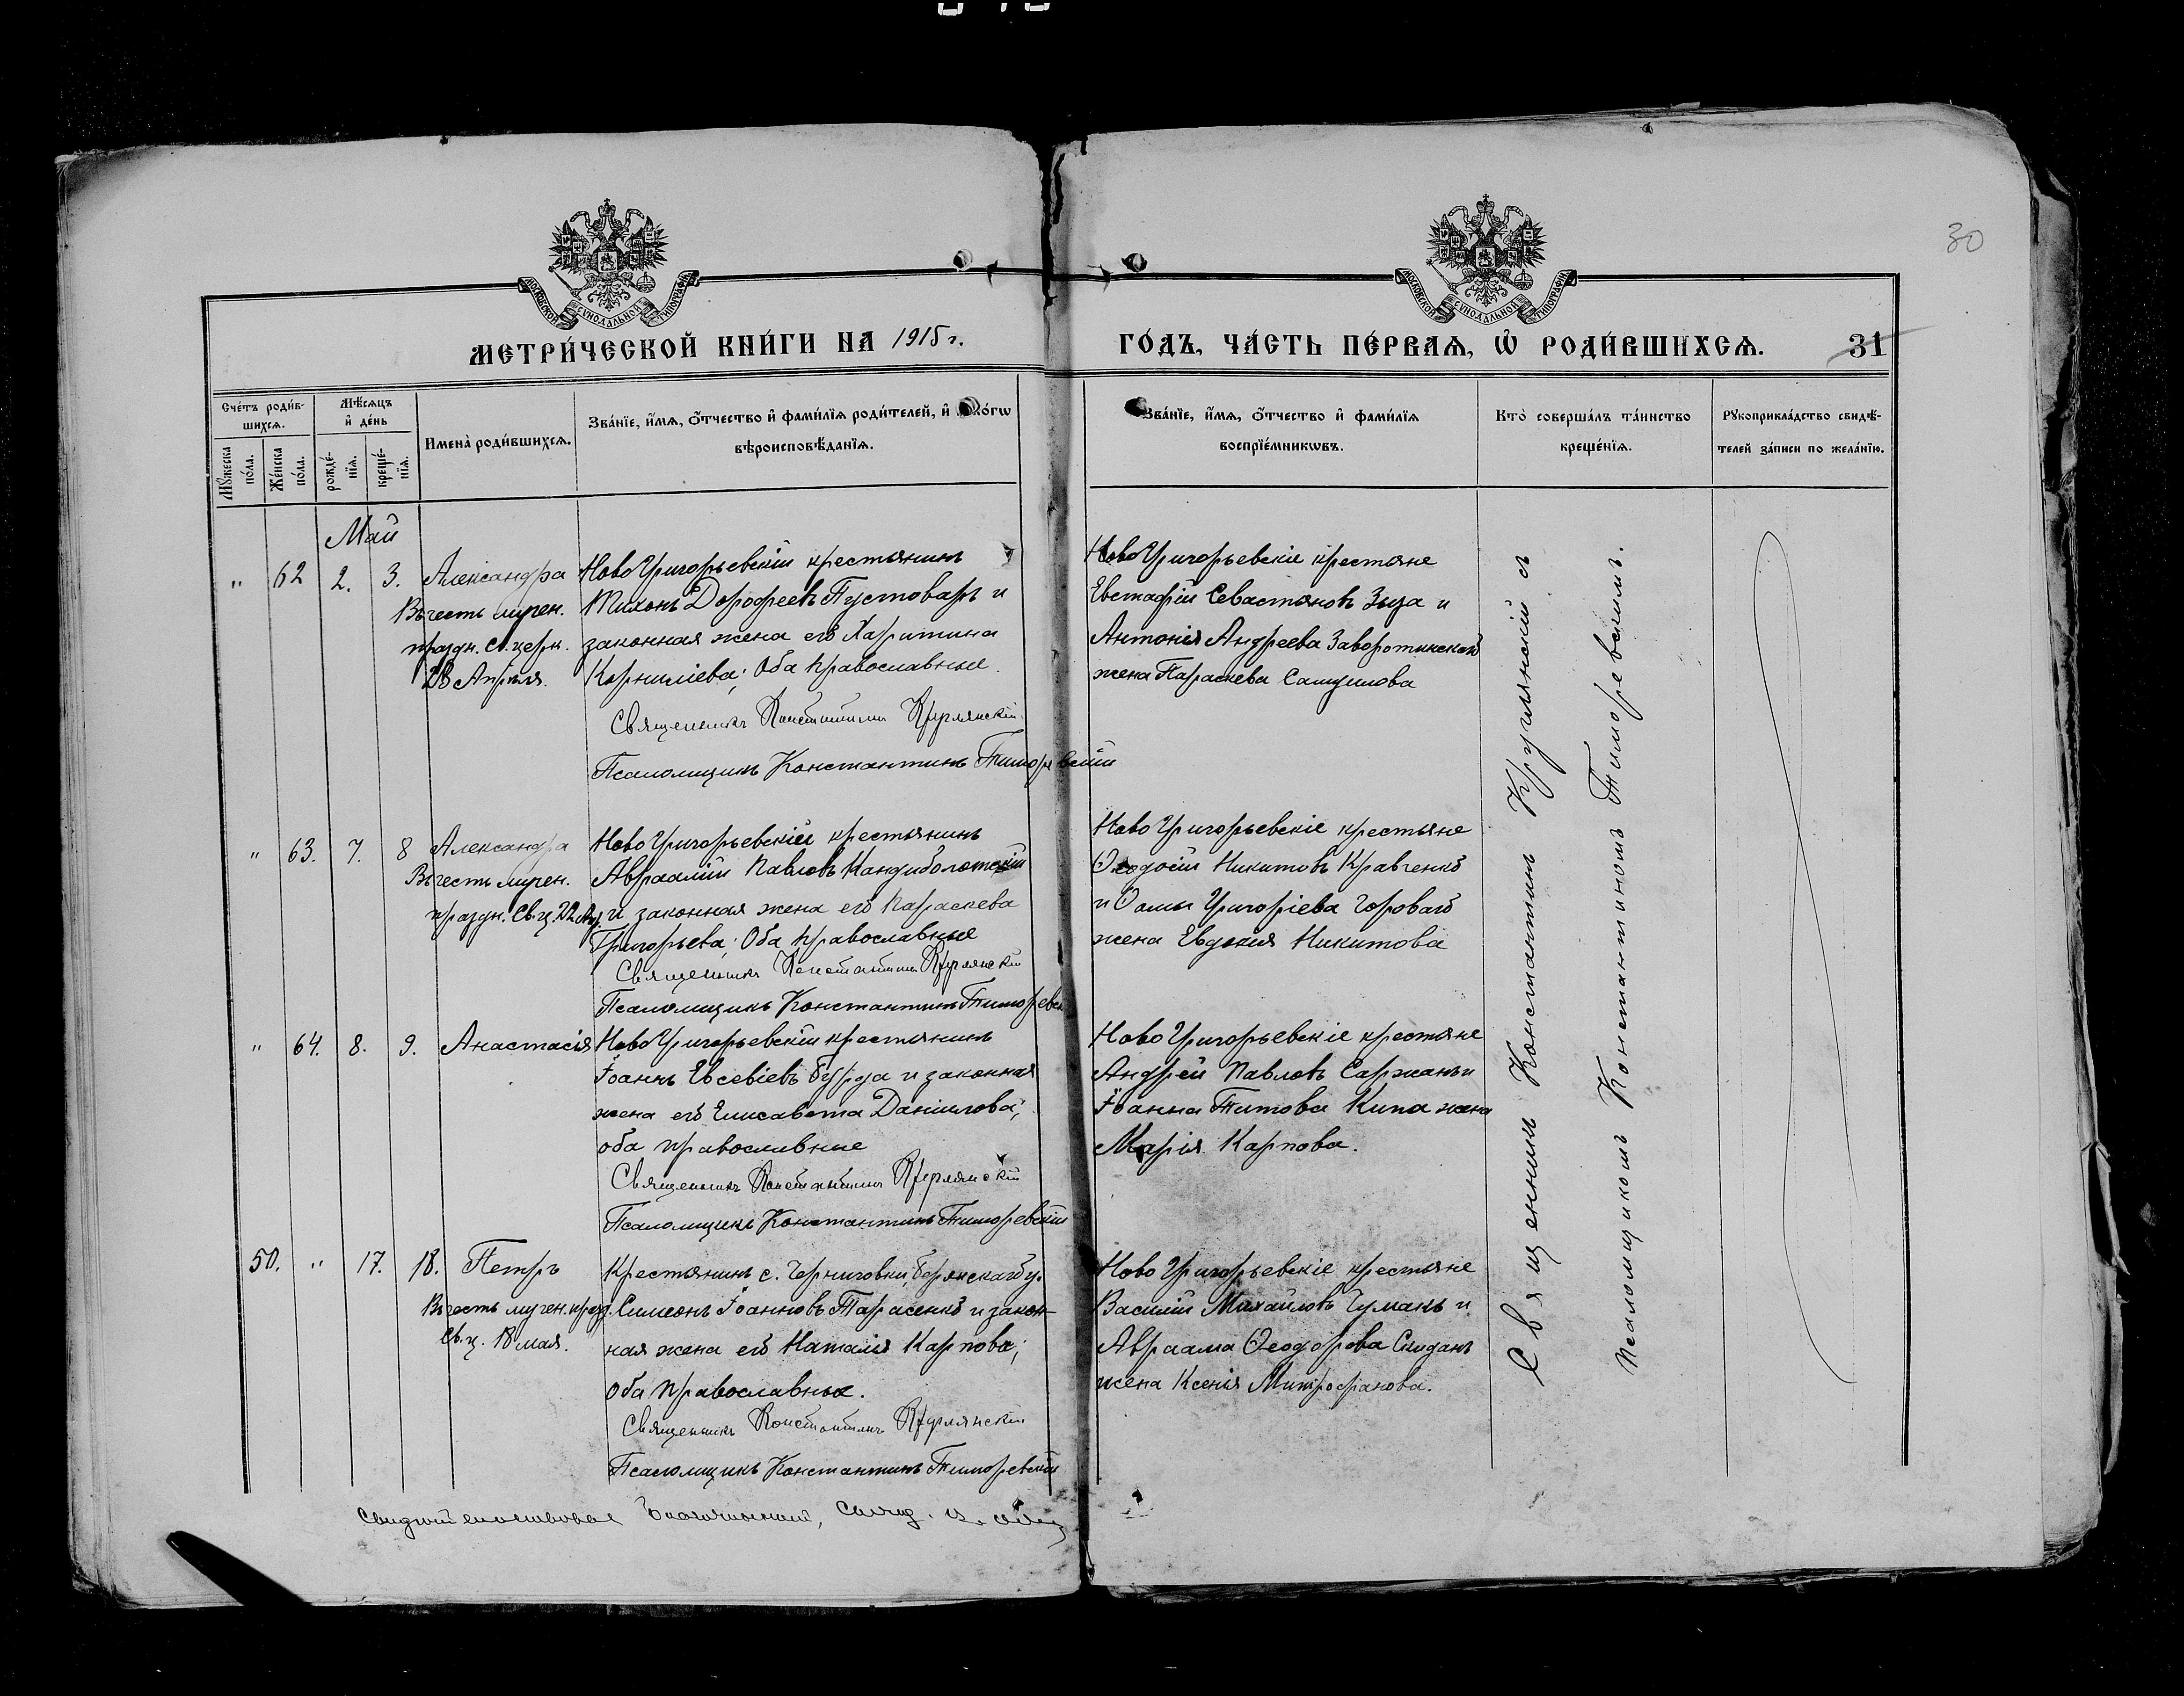 30
МЕТРИ́ЧЕСКОЙ КНИ́ГИ НА 1915 г.
ГО́ДЪ, ЧА́СТЬ ПЕ́РВАѦ, Ѡ҆ РОДИ́ВШИХСѦ.
31
Сче́тъ роди́в-
шихсѧ.
Мꙋжеска
по́ла.
Же́нска
по́ла.
Мѣ́сѧцъ
и҆ де́нь
рожде́-
нїѧ.
креще́-
нїѧ.
Имена̀ роди́вшихсѧ.
Зва́нїе, и҆́мѧ, ѻ҆́тчество и҆ фами́лїѧ роди́телей, и҆ како́гѡ
вѣроисповѣ́данїѧ.
Зва́нїе, и҆́мѧ, ѻ҆́тчество и҆ фами́лїѧ
воспрїе́мникѡвъ.
Кто̀ соверша́лъ та́инство
креще́нїѧ.
Рꙋкоприкла́дство свидѣ́-
телей за́писи по жела́нїю.
Май
" 62 2. 3. Александра
Въ честь мучен.
праздн. св. церк.
23 Апрѣля.
Ново Григорьевскій крестьянинъ
Тихонъ Дорофеевъ Пустоваръ и
законная жена его Харитина
Корниліева; Оба православные.
Священникъ Константинъ
Псаломщикъ Константинъ
Ново Григорьевскіе крестьяне
Евстафій Севастьяновъ Зыза и
Антонія Андреева Заворотинскаго
жена Параскева Самуилова
" 63. 7. 8 Александра
Въ честь мучен.
праздн. Св. ц. 22 Ап.
Ново Григорьевскій крестьянинъ
Авраамій Павловъ Кандиболотскій
и законная жена его Параскева
Григорьева; Оба православные
Священникъ Константинъ
Псаломщикъ Константинъ
Ново Григорьевскіе крестьяне
Ѳеодосій Никитовъ Кравченко
и Ѳомы Григоріева Горового
жена Евдокия Никитова
" 64. 8. 9. Анастасія
Ново Григорьевскій крестьянинъ
Іоаннъ Евсевіевъ Бурда и законная
жена его Елисавета Даниилова;
оба православные
Священникъ Константинъ
Псаломщикъ Константинъ
Ново Григорьевскіе крестьяне
Андрей Павловъ Саржанъ и
Іоанна Титова Кипа жена
Марія Карпова.
50. " 17. 18. Петръ
Въ честь мучен. празд.
Св. ц. 18 мая.
Крестьянинъ с. Черниговки, Бердянскаго у.
Симеонъ Іоанновъ Тарасенко и закон-
ная жена его Наталія Карпова;
оба православные.
Священникъ Константинъ
Псаломщикъ Константинъ
Ново Григорьевскіе крестьяне
Василій Михайловъ Чумакъ и
Авраама Ѳеодорова Скиданъ
жена Ксенія Митрофанова.
Священникъ Константинъ съ
Псаломщикомъ Константиномъ